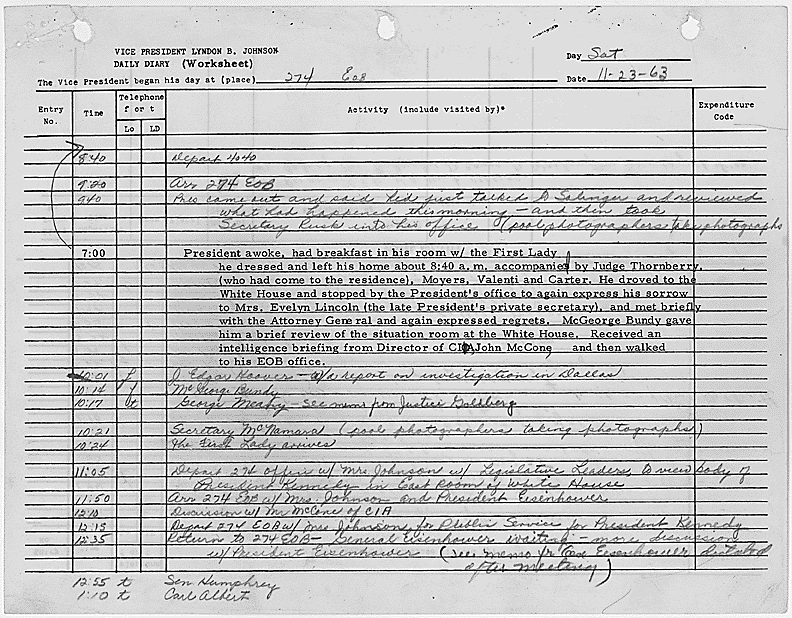 VICE PRESIDENT LYNDON B. JOHNSON
DAILY DIARY (Worksheet)
Day Sat
The Vice President began his day at (place) 274 EOB
Date 11-23-63
Entry No. Time Telephone f or t Lo LD Activity (include visited by)* Expenditure Code
8:40 Depart 4040
9:20 Arr 274 EOB
940 Pres came out and said he'd just talked to Salinger and reviewed
what had happened this morning - and then took
Secretary Rusk into his office (pool photographers take photographs
7:00 President awoke, had breakfast in his room w/ the First Lady
he dressed and left his home about 8:40 a.m. accompanied by Judge Thornberry,
(who had come to the residence), Moyers, Valenti and Carter. He droved to the
White House and stopped by the President's office to again express his sorrow
to Mrs. Evelyn Lincoln (the late President's private secretary), and met briefly
with the Attorney General and again expressed regrets. McGeorge Bundy gave
him a brief review of the situation room at the White House. Received an
intelligence briefing from Director of CIA John McCong and then walked
to his EOB office.
10:01 f J. Edgar Hoover - w/a report on investigation in Dallas
10:14 f McGeorge Bundy
10:17 t George Meany - see memo from Justice Goldberg
10:21 Secretary McNamara (pool photographers taking photographs)
10:24 The First Lady arrives
11:05 Depart 274 office w/ Mrs. Johnson w/ Legislative Leaders, to view body of
President Kennedy in East Room of White House
11:50 Arr 274 EOB w/ Mrs. Johnson and President Eisenhower
12:10 Discussion w/ Mr McCone of CIA
12:15 Depart 274 EOB w/ Mrs Johnson, for Public Service for President Kennedy
12:35 Return to 274 EOB - General Eisenhower waiting - more discussion
w/ President Eisenhower (see memo Eisenhower dictated
after meeting)
12:55 t Sen Humphrey
1:10 t Carl Albert